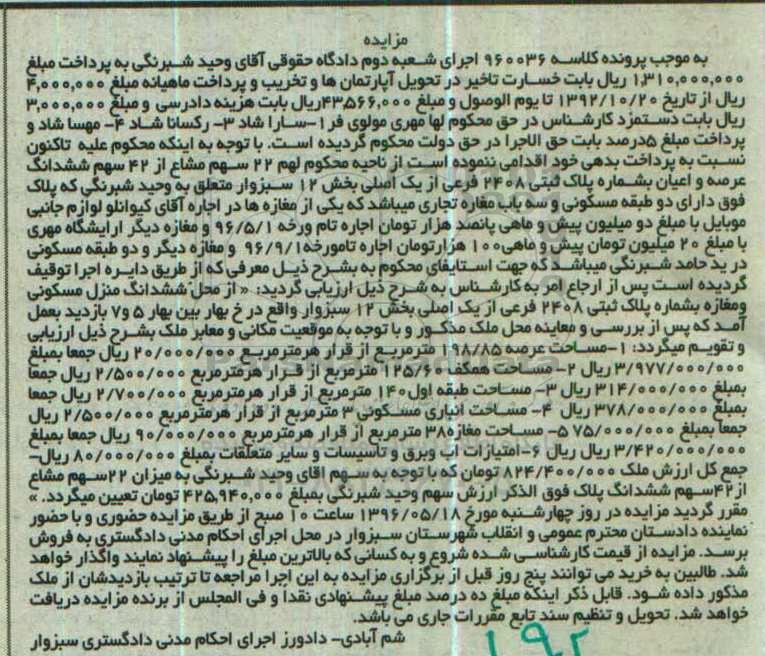 مزایده
به موجب پرونده کلاسه ۹۶۰۰۳۶ اجرای شعبه دوم دادگاه حقوقی آقای وحید شبرنگی به پرداخت مبلغ
۱,۳۱۰,۰۰۰,۰۰۰ ریال بابت خسارت تاخیر در تحویل آپارتمان ها و تخریب و پرداخت ماهیانه مبلغ ۴,۰۰۰,۰۰۰
ریال از تاریخ ۱۳۹۲/۱۰/۲۰ تا یوم الوصول و مبلغ ۴۳,۵۶۶,۰۰۰ریال بابت هزینه دادرسی و مبلغ ۳,۰۰۰,۰۰۰
ریال بابت دستمزد کارشناس در حق محکوم لها مهری مولوی فر۱-سارا شاد ۳- رکسانا شاد ۴- مهسا شاد و
پرداخت مبلغ ۵درصد بابت حق الاجرا در حق دولت محکوم گردیده است. با توجه به اینکه محکوم علیه تاکنون
نسبت به پرداخت بدهی خود اقدامی ننموده است از ناحیه محکوم لهم ۲۲ سهم مشاع از ۴۲ سهم ششدانگ
عرصه و اعیان بشماره پلاک ثبتی ۲۴۰۸ فرعی از یک اصلی بخش ۱۲ سبزوار متعلق به وحید شبرنگی که پلاک
فوق دارای دو طبقه مسکونی و سه باب مغازه تجاری میباشد که یکی از مغازه ها در اجاره آقای کیوانلو لوازم جانبی
موبایل با مبلغ دو میلیون پیش و ماهی پانصد هزار تومان اجاره تام ورخه ۹۶/۵/۱ و مغازه دیگر ارایشگاه مهری
با مبلغ ۲۰ میلیون تومان پیش و ماهی۱۰۰ هزارتومان اجاره تامورخه ۹۶/۹/۱ ومغازه دیگر و دو طبقه مسکونی
در ید حامد شبرنگی میباشد که جهت استایفای محکوم به بشرح ذیل معرفی که از طریق دایره اجرا توقیف
گردیده است پس از ارجاع امر به کارشناس به شرح ذیل ارزیابی گردید: « از محل ششدانگ منزل مسکونی
ومغازه بشماره پلاک ثبتی ۲۴۰۸ فرعی از یک اصلی بخش ۱۲ سبزوار واقع در خ بهار بین بهار ۵ و۷ بازدید بعمل
آمد که پس از بررسی و معاینه محل ملک مذکور و با توجه به موقعیت مکانی و معابر ملک بشرح ذیل ارزیابی
و تقویم میگردد: ۱-مساحت عرصه ۱۹۸/۸۵ مترمربع از قرار هرمترمربع ۲۰/۰۰۰/۰۰۰ ریال جمعا بمبلغ
۳/۹۷۷/۰۰۰/۰۰۰ ریال ۲- مساحت همکف ۱۲۵/۶۰ مترمربع از قرار هرمترمربع ۲/۵۰۰/۰۰۰ ریال جمعا
بمبلغ ۳۱۴/۰۰۰/۰۰۰ ریال ۳- مساحت طبقه اول۱۴۰ مترمربع از قرار هرمترمربع ۲/۷۰۰/۰۰۰ ریال جمعا
بمبلغ ۳۷۸/۰۰۰/۰۰۰ ریال ۴- مساحت انباری مسکونی ۳ مترمربع از قرار هرمترمربع ۲/۵۰۰/۰۰۰ ریال
جمعا بمبلغ ۷۵/۰۰۰/۰۰۰ ۵- مساحت مغازه۳۸ مترمربع از قرار هرمترمربع ۹۰/۰۰۰/۰۰۰ ریال جمعا بمبلغ
۳/۴۲۰/۰۰۰/۰۰۰ ریال ریال ۶-امتیازات اب وبرق و تاسیسات و سایر متعلقات بمبلغ ۸۰/۰۰۰/۰۰۰ ریال-
جمع کل ارزش ملک ۸۲۴/۴۰۰/۰۰۰ تومان که با توجه به سهم اقای وحید شبرنگی به میزان ۲۲سهم مشاع
از۴۲سهم ششدانگ پلاک فوق الذکر ارزش سهم وحید شبرنگی بمبلغ ۴۲۵,۹۴۰,۰۰۰ تومان تعیین میگردد. »
مقرر گردید مزایده در روز چهارشنبه مورخ ۱۳۹۶/۰۵/۱۸ ساعت ۱۰ صبح از طریق مزایده حضوری و با حضور
نماینده دادستان محترم عمومی و انقلاب شهرستان سبزوار در محل اجرای احکام مدنی دادگستری به فروش
برسد. مزایده از قیمت کارشناسی شده شروع و به کسانی که بالاترین مبلغ را پیشنهاد نمایند واگذار خواهد
شد. طالبین به خرید می توانند پنج روز قبل از برگزاری مزایده به این اجرا مراجعه تا ترتیب بازدیدشان از ملک
مذکور داده شود. قابل ذکر اینکه مبلغ ده درصد مبلغ پیشنهادی نقدا و فی المجلس از برنده مزایده دریافت
خواهد شد. تحویل و تنظیم سند تابع مقررات جاری می باشد.
شم آبادی- دادورز اجرای احکام مدنی دادگستری سبزوار
۱۹۲